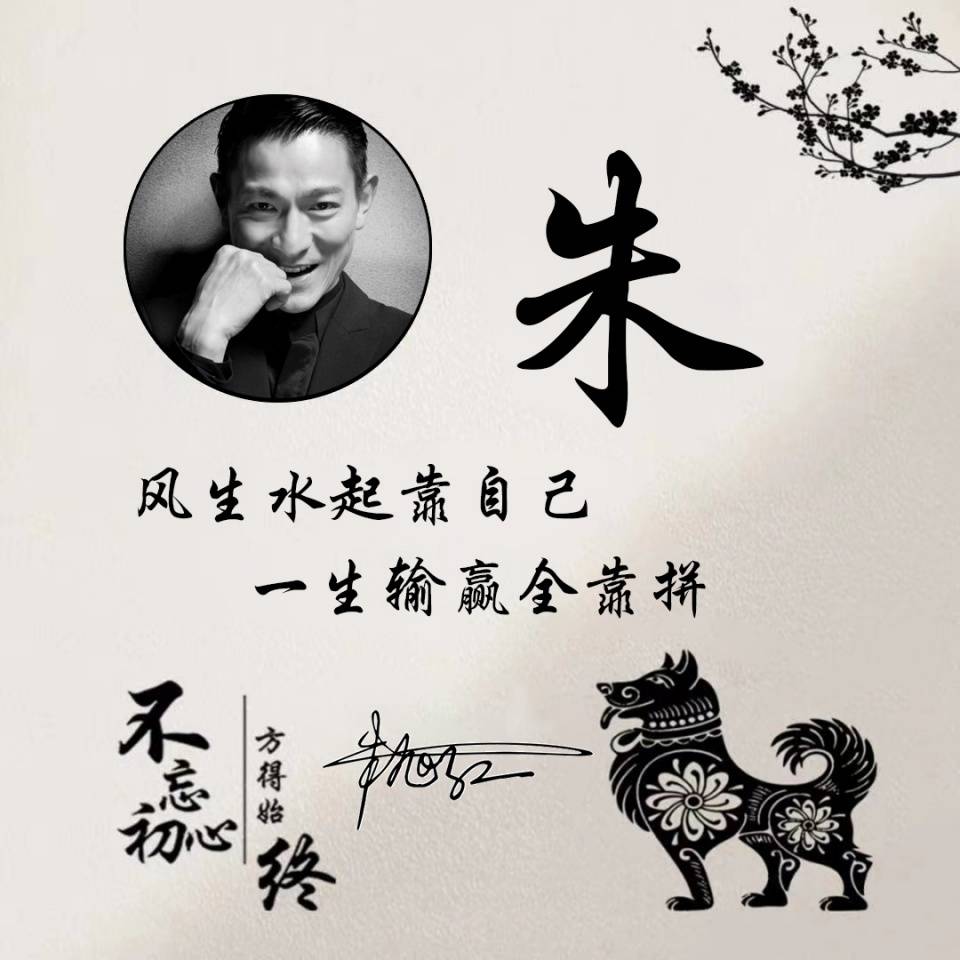 朱
风生水起靠自己
一生输赢全靠拼
不忘初心
方得始终
朱旭红